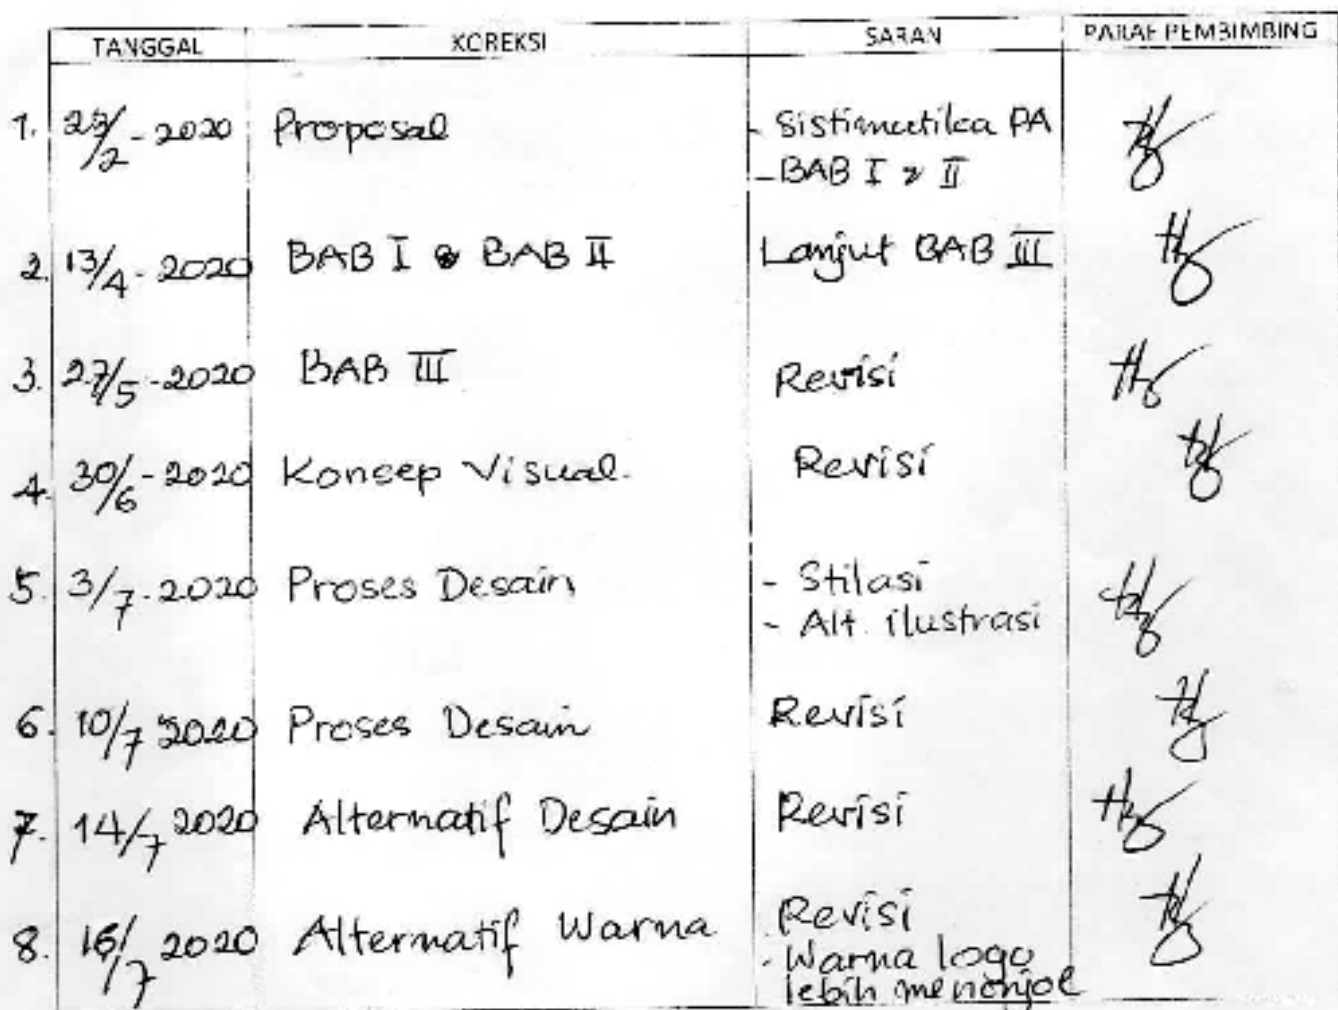 TANGGAL KOREKSI SARAN PARAF PEMBIMBING
1. 25/2 - 2020 Proposal - Sistimatika PA
- BAB I & II
2. 13/4 - 2020 BAB I & BAB II Lanjut BAB III
3. 27/5 - 2020 BAB III Revisi
4. 30/6 - 2020 Konsep Visual. Revisi
5. 3/7 - 2020 Proses Desain - Stilasi
- Alt. ilustrasi
6. 10/7 2020 Proses Desain Revisi
7. 14/7 2020 Alternatif Desain Revisi
8. 16/7 2020 Alternatif Warna Revisi
- Warna logo
lebih menonjol